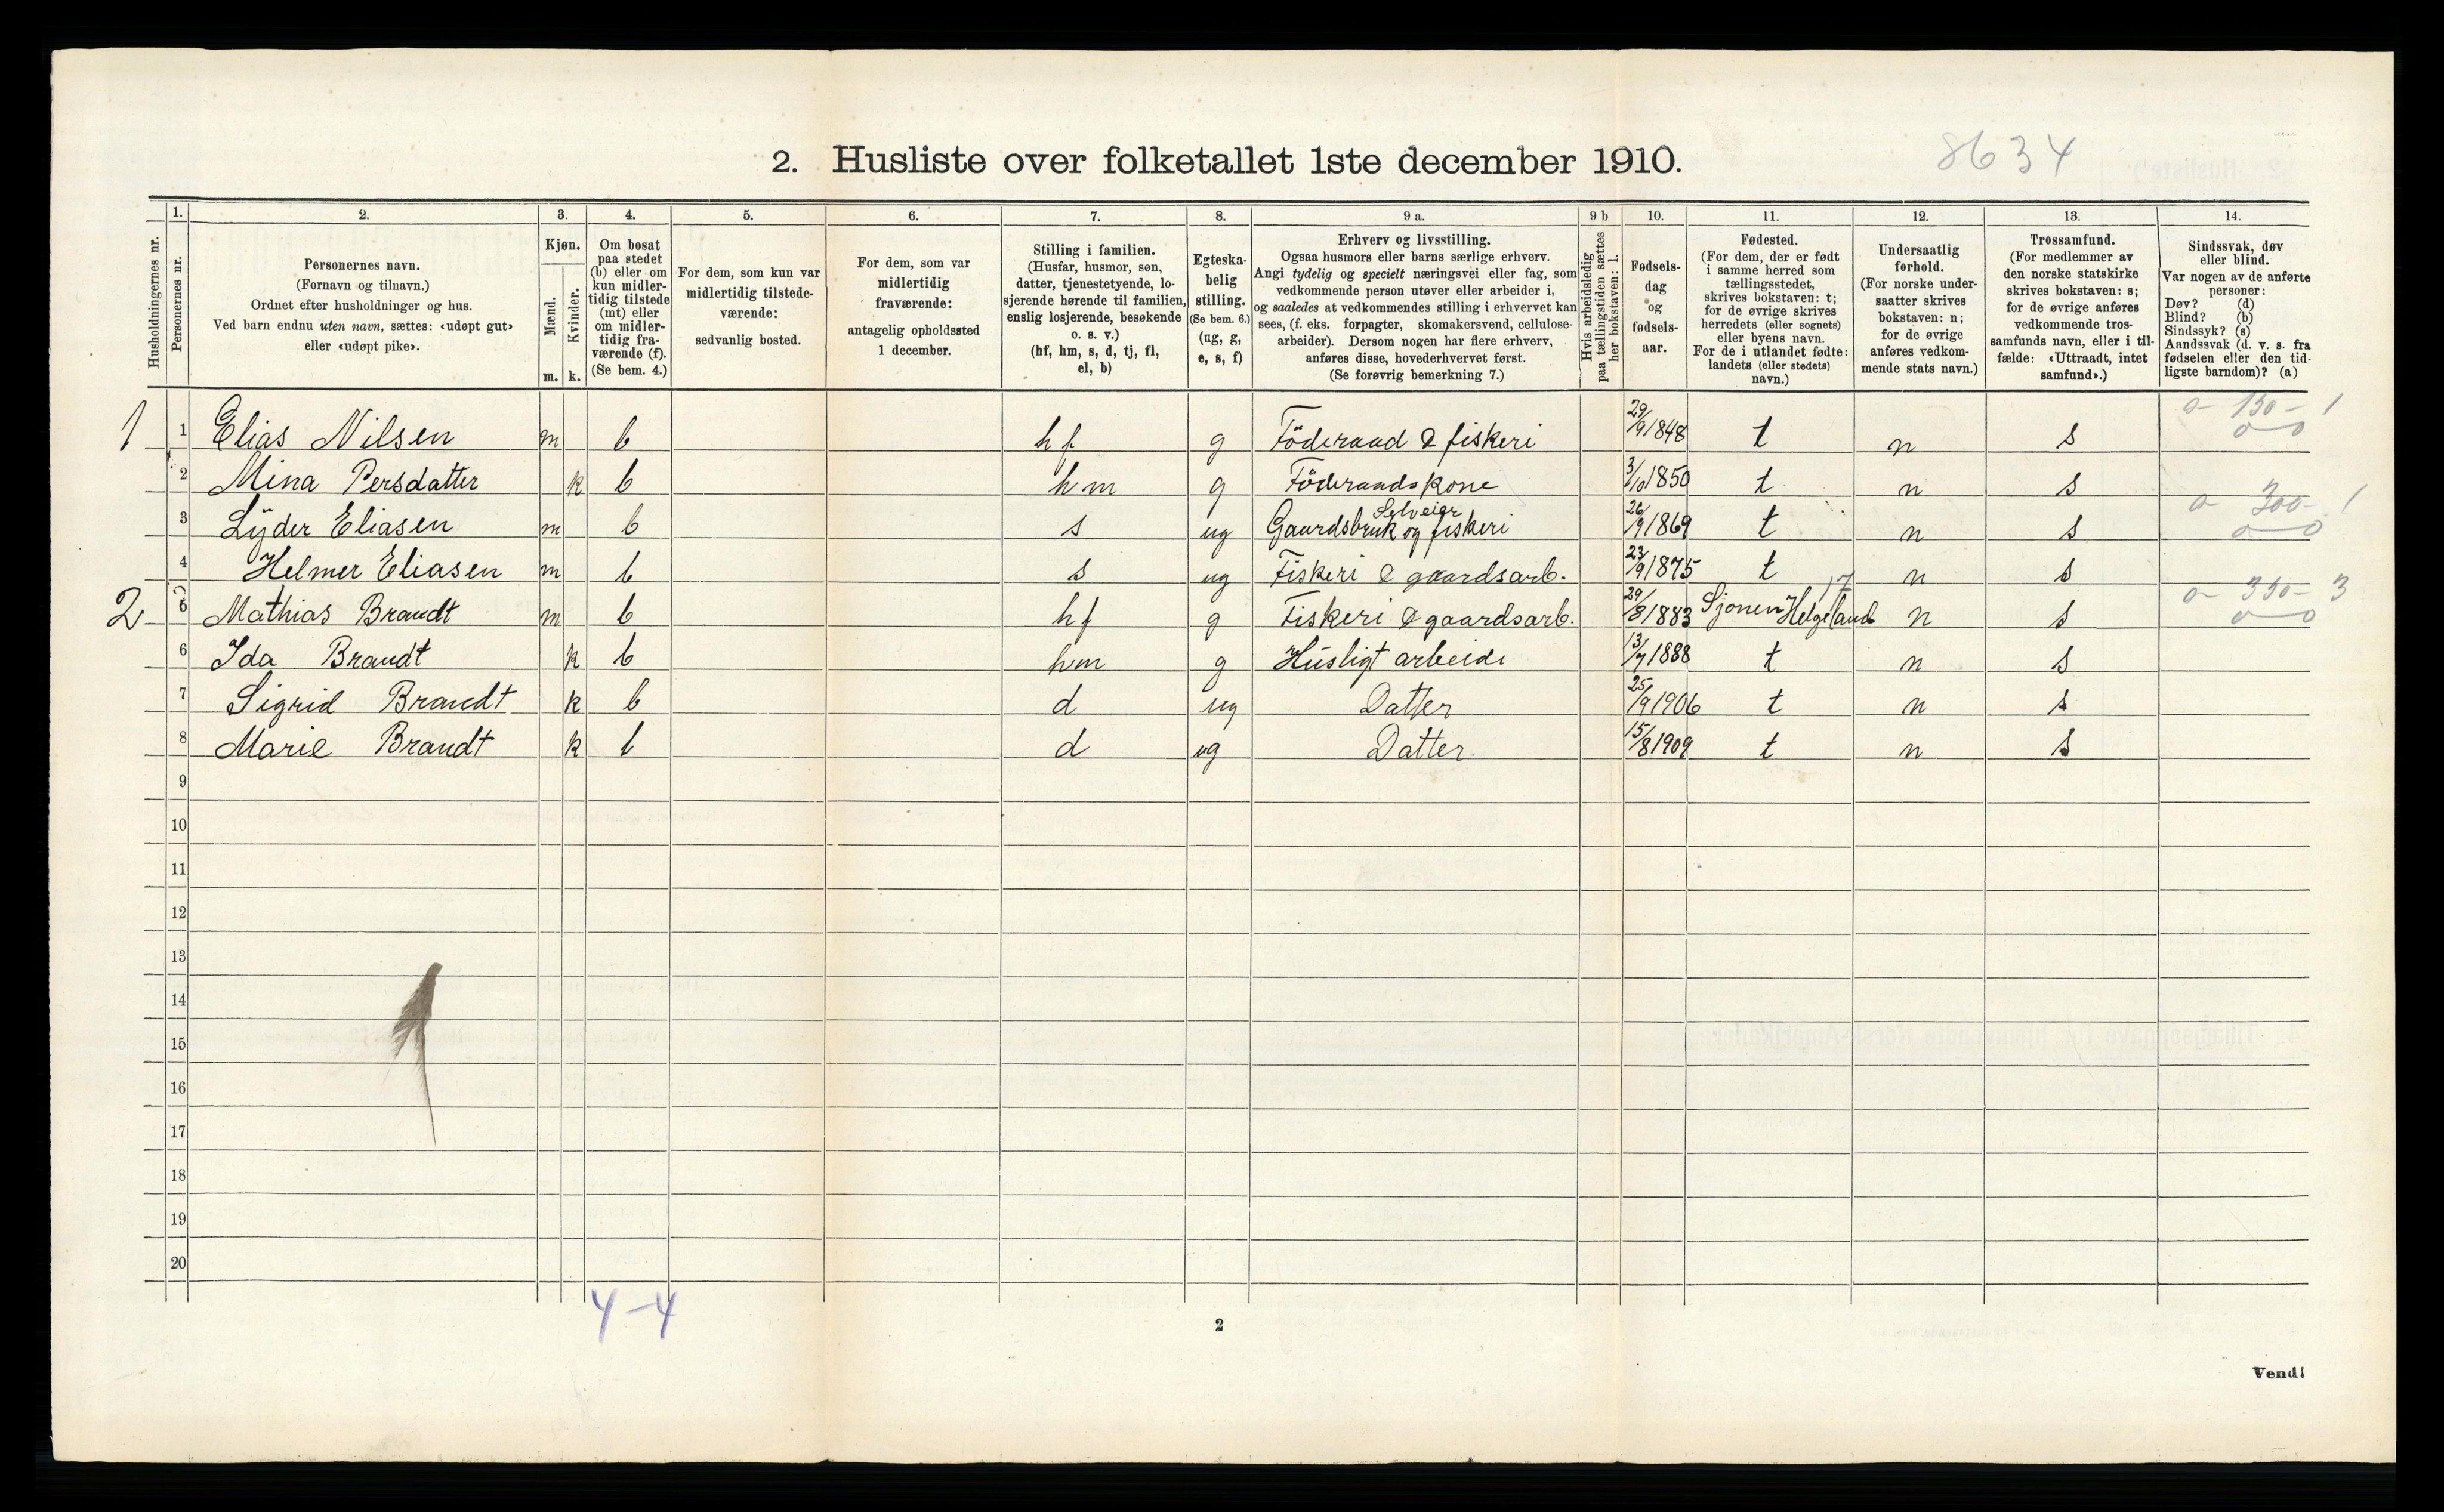 2. Husliste over folketallet 1ste december 1910.
8634
Husholdningernes nr.
1.
Personernes nr.
2.
Personernes navn.
(Fornavn og tilnavn.)
Ordnet efter husholdninger og hus.
Ved barn endnu uten navn, sættes: «udøpt gut»
eller «udøpt pike».
3.
Kjøn.
Mænd.
Kvinder.
m. k.
4.
Om bosat
paa stedet
(b) eller om
kun midler-
tidig tilstede
(mt) eller
om midler-
tidig fra-
værende (f).
(Se bem. 4.)
5.
For dem, som kun var
midlertidig tilstede-
værende:
sedvanlig bosted.
6.
For dem, som var
midlertidig
fraværende:
antagelig opholdssted
1 december.
7.
Stilling i familien.
(Husfar, husmor, søn,
datter, tjenestetyende, lo-
sjerende hørende til familien,
enslig losjerende, besøkende
o. s. v.)
(hf, hm, s, d, tj, fl,
el, b)
8.
Egteska-
belig
stilling.
(Se bem. 6.)
(ug, g,
e, s, f)
9 a.
Erhverv og livsstilling.
Ogsaa husmors eller barns særlige erhverv.
Angi tydelig og specielt næringsvei eller fag, som
vedkommende person utøver eller arbeider i,
og saaledes at vedkommendes stilling i erhvervet kan
sees, (f. eks. forpagter, skomakersvend, cellulose-
arbeider). Dersom nogen har flere erhverv,
anføres disse, hovederhvervet først.
(Se forøvrig bemerkning 7.)
9 b
Hvis arbeidsledig
paa tællingstiden sættes
her bokstaven: l.
10.
Fødsels-
dag
og
fødsels-
aar.
11.
Fødested.
(For dem, der er født
i samme herred som
tællingsstedet,
skrives bokstaven: t;
for de øvrige skrives
herredets (eller sognets)
eller byens navn.
For de i utlandet fødte:
landets (eller stedets)
navn.)
12.
Undersaatlig
forhold.
(For norske under-
saatter skrives
bokstaven: n;
for de øvrige
anføres vedkom-
mende stats navn.)
13.
Trossamfund.
(For medlemmer av
den norske statskirke
skrives bokstaven: s;
for de øvrige anføres
vedkommende tros-
samfunds navn, eller i til-
fælde: «Uttraadt, intet
samfund».)
14.
Sindssvak, døv
eller blind.
Var nogen av de anførte
personer:
Døv? (d)
Blind? (b)
Sindssyk? (s)
Aandssvak (d. v. s. fra
fødselen eller den tid-
ligste barndom)? (a)
0 - 150 - 1
1 1 Elias Nilsen m b hf g Föderaad & fiskeri 29/9 1848 t n s 0-0
2 Mina Persdatter k b hm g Föderaadskone 3/10 1850 t n s
Selveier
0 - 300 - 1
3 Lÿder Eliasen m b s ug Gaardsbruk og fiskeri 26/9 1869 t n s 0-0
4 Helmer Eliasen m b s ug Fiskeri & gaardsarb. 23/9 1875 t n s
17
0 - 350 - 3
2 5 Mathias Brandt m b hf g Fiskeri & gaardsarb. 29/8 1883 Sjonen Helgeland n s 0-0
6 Ida Brandt k b hm g Husligt arbeide 13/7 1888 t n s
7 Sigrid Brandt k b d ug Datter 25/9 1906 t n s
8 Marie Brandt k b d ug Datter 15/8 1909 t n s
9
10
11
12
13
14
15
16
17
18
19
20
4-4
2
Vend!